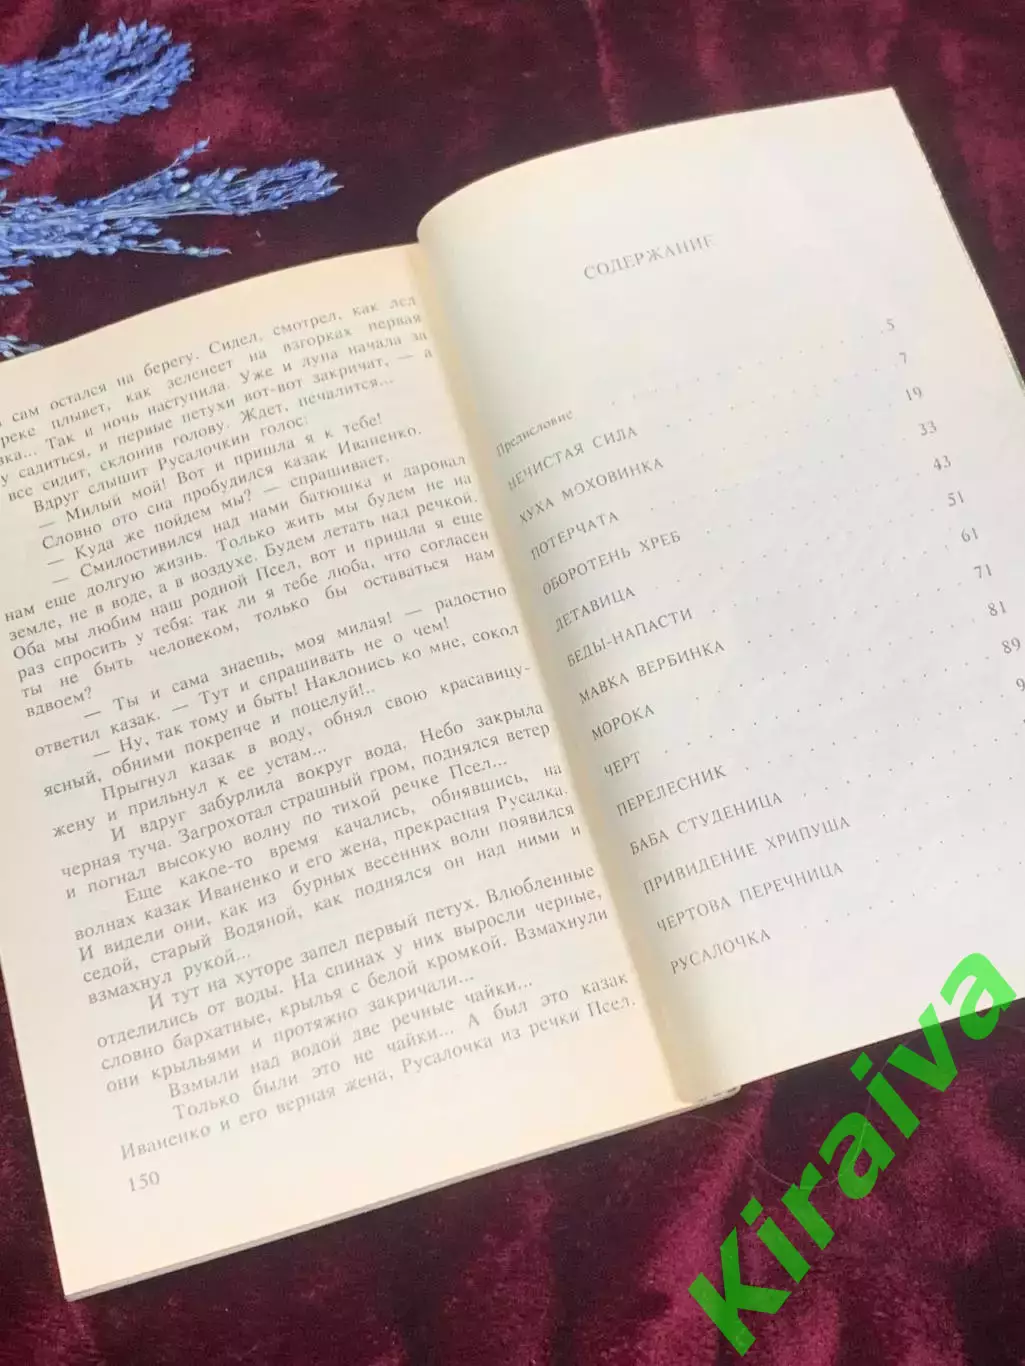 сам остался на берегу. Сидел, смотрел, как лед
плывет, как зеленеет на взгорках первая
Так и ночь наступила. Уже и луна начала за
садиться, и первые петухи вот-вот закричат, — а
все сидит, склонив голову. Ждет, печалится...
Вдруг слышит Русалочкин голос:
— Милый мой! Вот и пришла я к тебе!
Словно ото сна пробудился казак Иваненко.
— Куда же пойдем мы? — спрашивает.
— Смилостивился над нами батюшка и даровал
нам еще долгую жизнь. Только жить мы будем не на
земле, не в воде, а в воздухе. Будем летать над речкой.
Оба мы любим наш родной Псел, вот и пришла я еще
раз спросить у тебя: так ли я тебе люба, что согласен
ты не быть человеком, только бы оставаться нам
вдвоем?
— Ты и сама знаешь, моя милая! — радостно
ответил казак. — Тут и спрашивать не о чем!
— Ну, так тому и быть! Наклонись ко мне, сокол
ясный, обними покрепче и поцелуй!..
Прыгнул казак в воду, обнял свою красавицу-
жену и прильнул к ее устам...
И вдруг забурлила вокруг вода. Небо закрыла
черная туча. Загрохотал страшный гром, поднялся ветер
и погнал высокую волну по тихой речке Псел...
Еще какое-то время качались, обнявшись, на
волнах казак Иваненко и его жена, прекрасная Русалка.
И видели они, как из бурных весенних волн появился
седой, старый Водяной, как поднялся он над ними и
взмахнул рукой...
И тут на хуторе запел первый петух. Влюбленные
отделились от воды. На спинах у них выросли черные,
словно бархатные, крылья с белой кромкой. Взмахнули
они крыльями и протяжно закричали...
Взмыли над водой две речные чайки...
Только были это не чайки... А был это казак
Иваненко и его верная жена, Русалочка из речки Псел.
150
СОДЕРЖАНИЕ
Предисловие . . . 5
НЕЧИСТАЯ СИЛА . . . 7
ХУХА МОХОВИНКА . . . 19
ПОТЕРЧАТА . . . 33
ОБОРОТЕНЬ ХРЕБ . . . 43
ЛЕТАВИЦА . . . 51
БЕДЫ-НАПАСТИ . . . 61
МАВКА ВЕРБИНКА . . . 71
МОРОКА . . . 81
ЧЕРТ . . . 89
ПЕРЕЛЕСНИК . . .
БАБА СТУДЕНИЦА . . .
ПРИВИДЕНИЕ ХРИПУША . . .
ЧЕРТОВА ПЕРЕЧНИЦА . . .
РУСАЛОЧКА . . .
Kiraiva